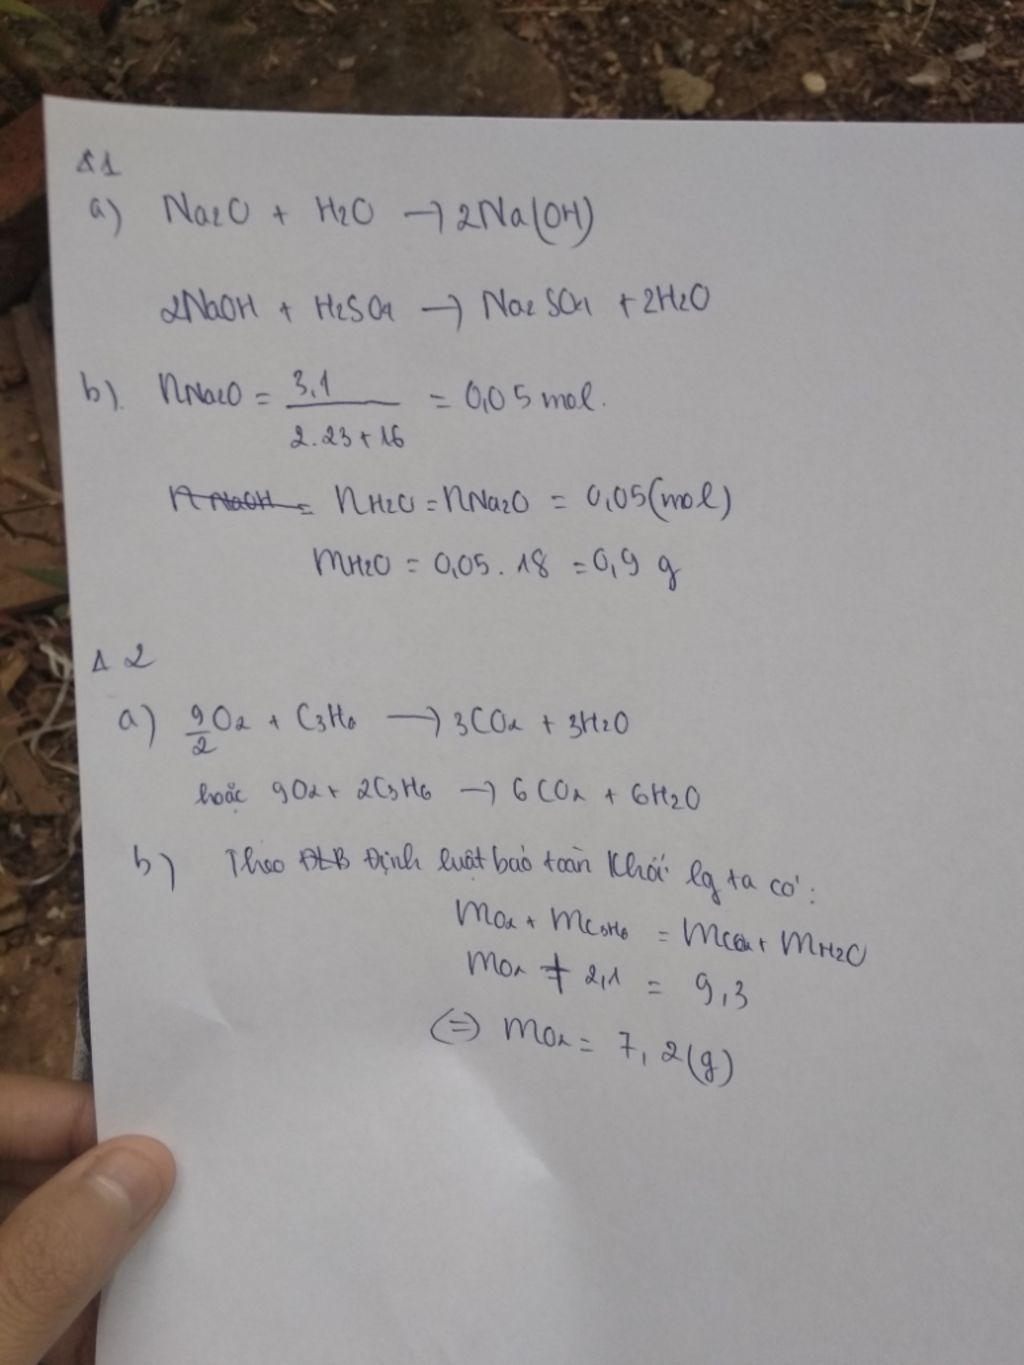 Δ1
a) Na2O + H2O → 2Na(OH)
2NaOH + H2SO4 → Na2SO4 + 2H2O
b). nNa2O = 3,1 / 2.23+16 = 0,05 mol.
n NaOH = nH2O = nNa2O = 0,05(mol)
mH2O = 0,05. 18 = 0,9 g
Δ 2
a) 9/2 O2 + C3H6 → 3CO2 + 3H2O
hoặc 9O2 + 2C3H6 → 6CO2 + 6H2O
b) Theo ĐLB Định luật bảo toàn Khối lg ta có:
mO2 + mC3H6 = mCO2 + mH2O
mO2 + 2,1 = 9,3
(=) mO2 = 7,2(g)